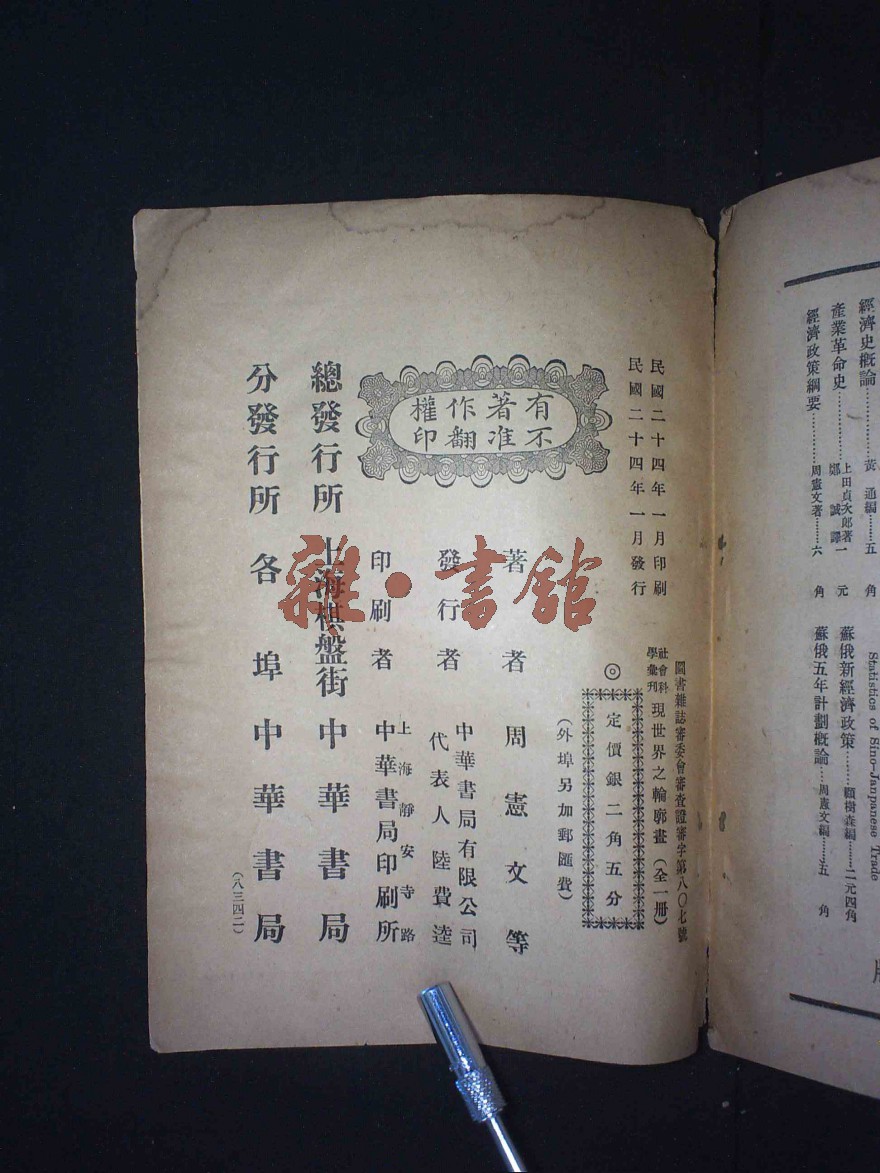 民國二十四年一月印刷
民國二十四年一月發行
圖書雜誌審委會審查證審字第八〇七號
社會科學彙刊 現世界之輪廓畫(全一冊)
◎定價銀二角五分
(外埠另加郵匯費)
有著作權
不准翻印
著者 周憲文等
發行者 中華書局有限公司
代表人 陸費逵
印刷者 上海靜安寺路
中華書局印刷所
總發行所 上海棋盤街 中華書局
分發行所 各埠 中華書局
(八三四二)
雜·書館
經濟史概論………黃通編……五角
產業革命史………上田貞次郎著 鄭誠譯 一元
經濟政策綱要………周憲文著……六角
Statistics of Sino-Janpanese Trade
蘇俄新經濟政策………顧樹森編……二元四角
蘇俄五年計劃概論……周憲文編……五角